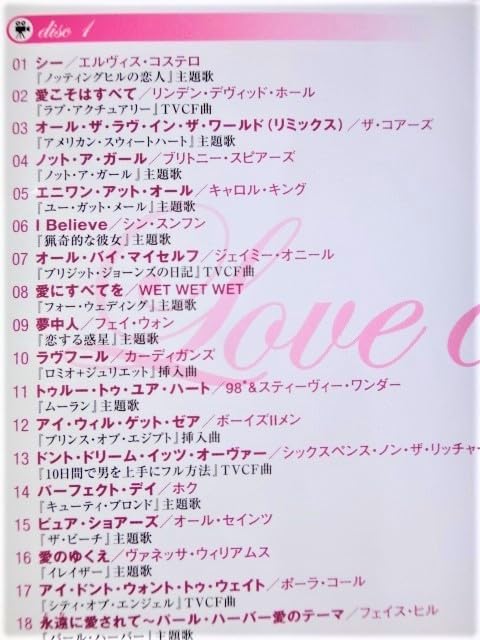 disc 1
01 シー／エルヴィス・コステロ
『ノッティングヒルの恋人』主題歌
02 愛こそはすべて／リンデン・デヴィッド・ホール
『ラブ・アクチュアリー』TVCF曲
03 オール・ザ・ラヴ・イン・ザ・ワールド(リミックス)／ザ・コアーズ
『アメリカン・スウィートハート』主題歌
04 ノット・ア・ガール／ブリトニー・スピアーズ
『ノット・ア・ガール』主題歌
05 エニワン・アット・オール／キャロル・キング
『ユー・ガット・メール』主題歌
06 I Believe／シン・スンフン
『猟奇的な彼女』主題歌
07 オール・バイ・マイセルフ／ジェイミー・オニール
『ブリジット・ジョーンズの日記』TVCF曲
08 愛にすべてを／WET WET WET
『フォー・ウェディング』主題歌
09 夢中人／フェイ・ウォン
『恋する惑星』主題歌
10 ラヴフール／カーディガンズ
『ロミオ+ジュリエット』挿入曲
11 トゥルー・トゥ・ユア・ハート／98°&スティーヴィー・ワンダー
『ムーラン』主題歌
12 アイ・ウィル・ゲット・ゼア／ボーイズIIメン
『プリンス・オブ・エジプト』挿入曲
13 ドント・ドリーム・イッツ・オーヴァー／シックスペンス・ノン・ザ・リッチャー
『10日間で男を上手にフル方法』TVCF曲
14 パーフェクト・デイ／ホク
『キューティ・ブロンド』主題歌
15 ピュア・ショアーズ／オール・セインツ
『ザ・ビーチ』主題歌
16 愛のゆくえ／ヴァネッサ・ウィリアムス
『イレイザー』主題歌
17 アイ・ドント・ウォント・トゥ・ウェイト／ポーラ・コール
『シティ・オブ・エンジェル』TVCF曲
18 永遠に愛されて〜パール・ハーバー愛のテーマ／フェイス・ヒル
『パール・ハーバー』主題歌
Love